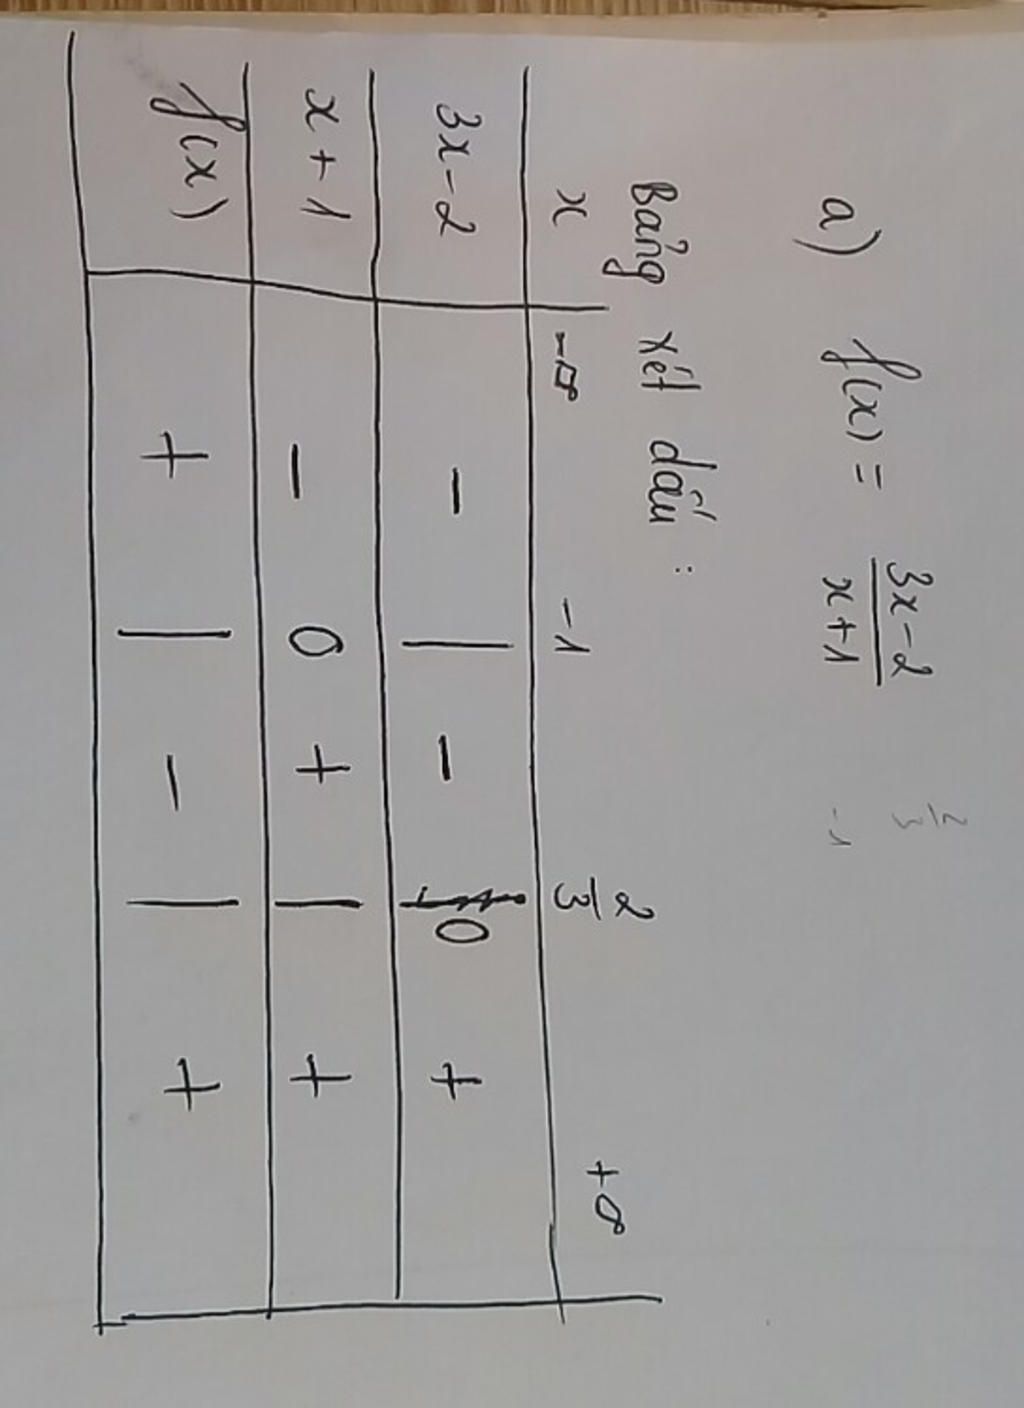 a) f(x) = \frac{3x-2}{x+1} \frac{2}{3} -1
Bảng xét dấu :
x -∞ -1 \frac{2}{3} +∞
3x-2 - | - 0 +
x+1 - 0 + | +
f(x) + | - | +